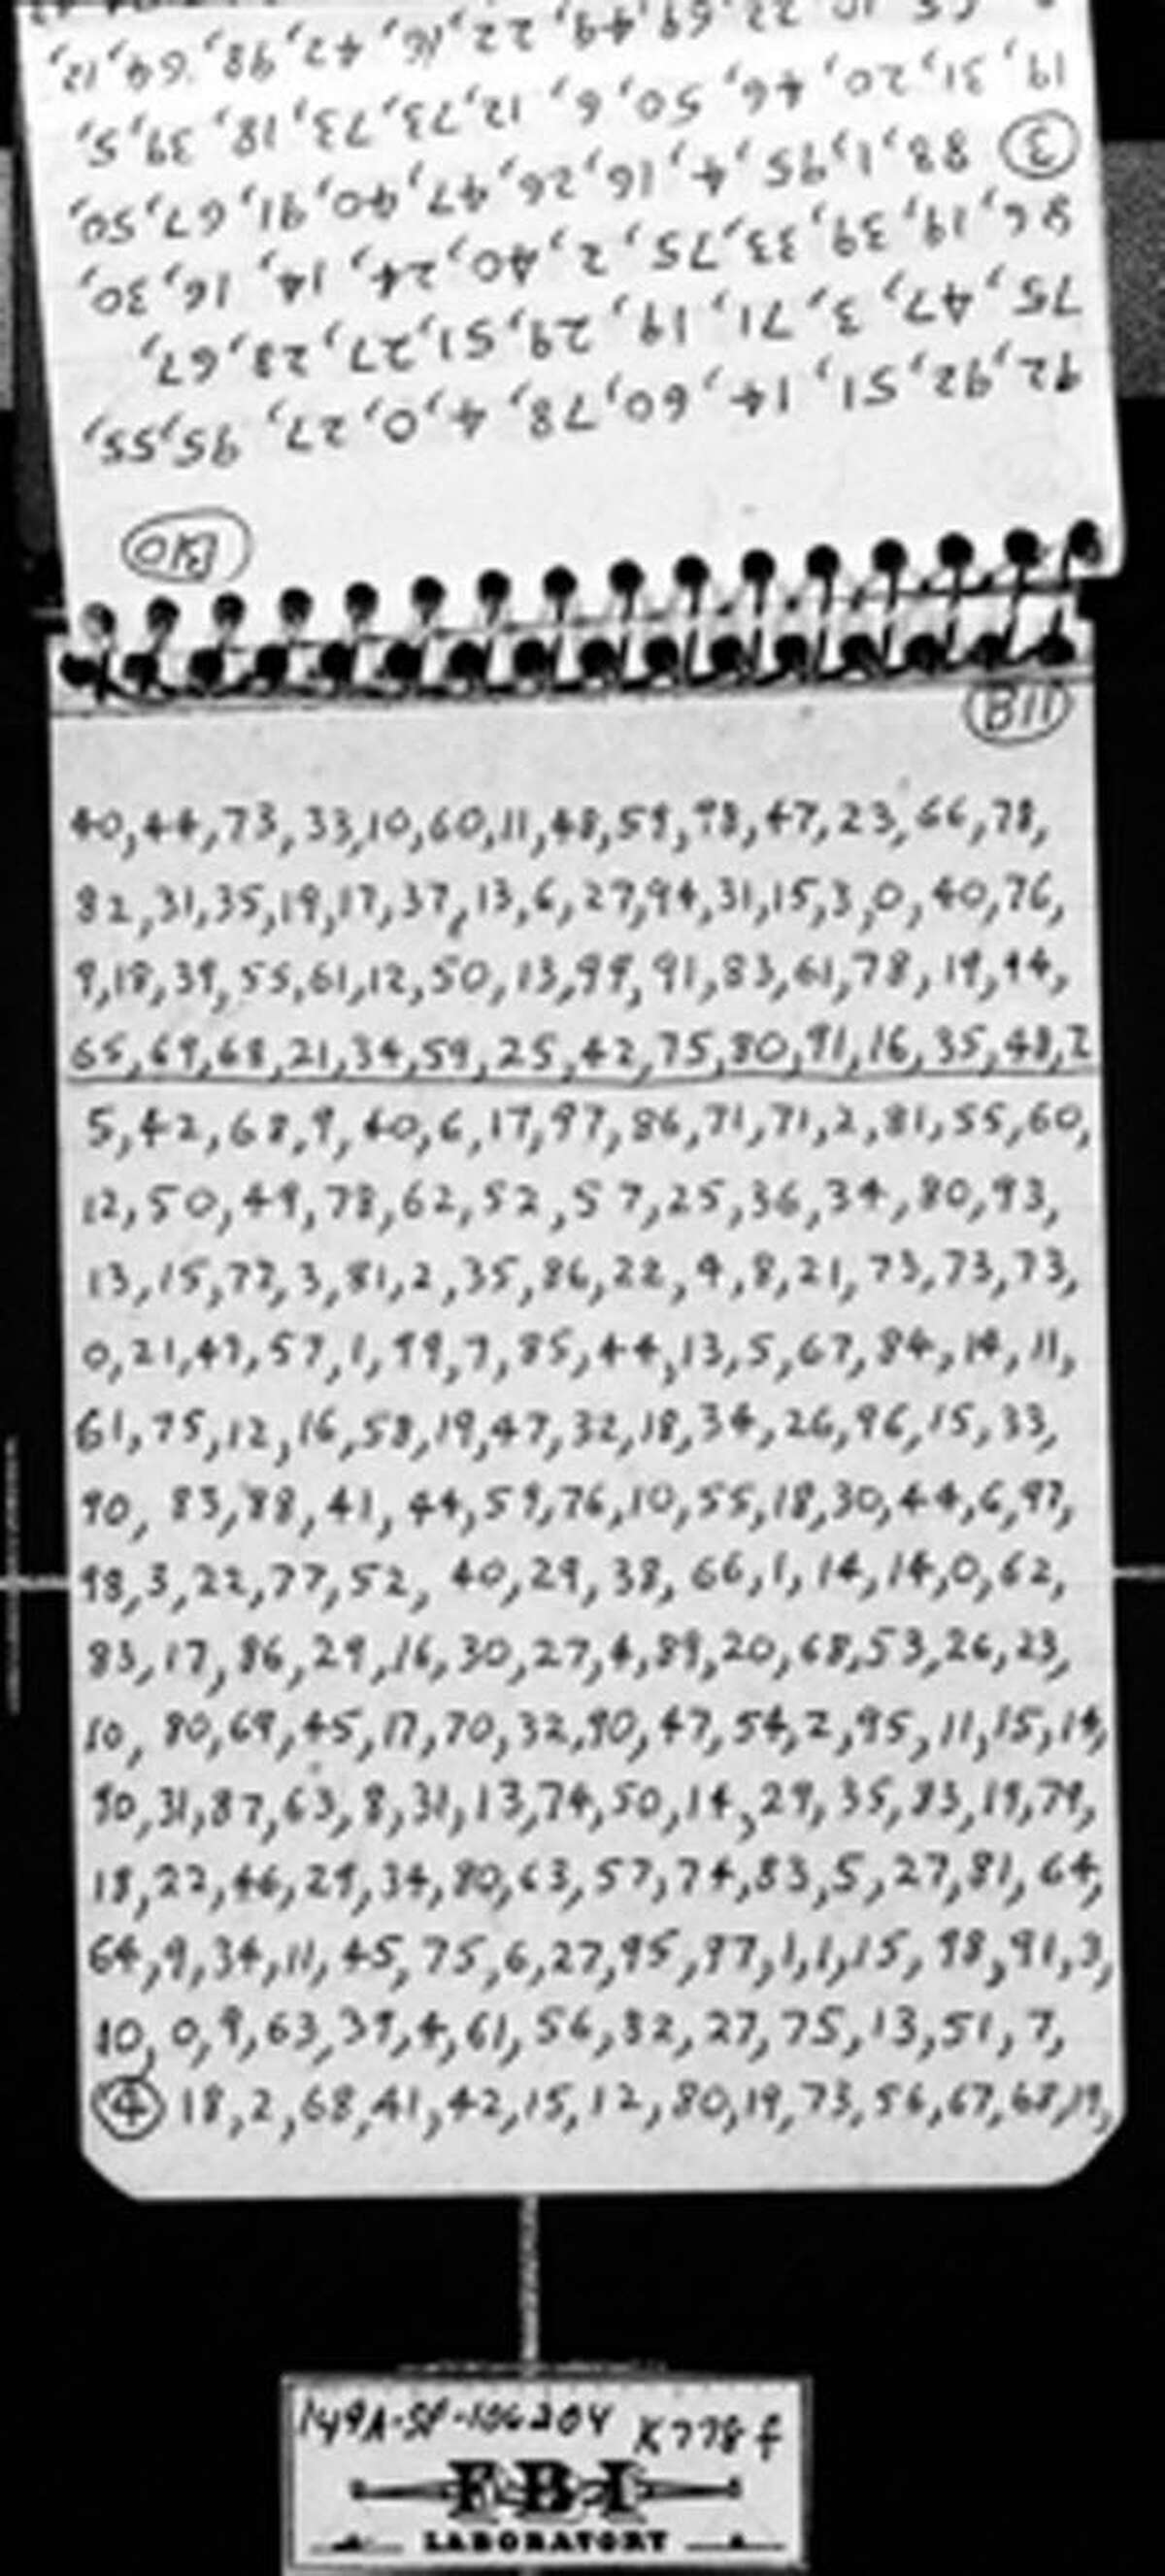 B10
92,92,51,14,60,78,4,0,27,95,55,
75,47,3,71,19,29,51,27,23,67,
86,19,39,33,75,2,40,24,14,16,30,
③ 88,1,95,4,16,26,47,40,91,67,50,
19,31,20,46,50,6,12,73,73,18,39,5,
22,69,49,22,16,42,98,64,12,
B11
40,44,73,33,10,60,11,48,59,98,47,23,66,78,
82,31,35,19,17,37,13,6,27,94,31,15,3,0,40,76,
9,18,39,55,61,12,50,13,99,91,83,61,78,19,44,
65,69,68,21,34,59,25,42,75,80,91,16,35,48,2
5,42,68,9,40,6,17,97,86,71,71,2,81,55,60,
12,50,49,78,62,52,57,25,36,34,80,93,
13,15,72,3,81,2,35,86,22,9,8,21,73,73,73,
0,21,47,57,1,99,7,85,44,13,5,67,84,14,11,
61,75,12,16,58,19,47,32,18,34,26,96,15,33,
90, 83,88,41,44,59,76,10,55,18,30,44,6,97,
98,3,22,77,52, 40,29,38,66,1,14,14,0,62,
83,17,86,29,16,30,27,4,89,20,68,53,26,23,
10, 80,69,45,17,70,32,90,47,54,2,95,11,15,14,
90,31,87,63,8,31,13,74,50,14,29,35,83,19,79,
18,22,46,29,34,80,63,57,74,83,5,27,81,64,
64,9,34,11,45,75,6,27,95,97,1,1,15,98,91,3,
10,0,9,63,39,4,61,56,82,27,75,13,51,7,
④ 18,2,68,41,42,15,12,80,19,73,56,67,68,19,
149A-SF-106204 K778 f
FBI
LABORATORY